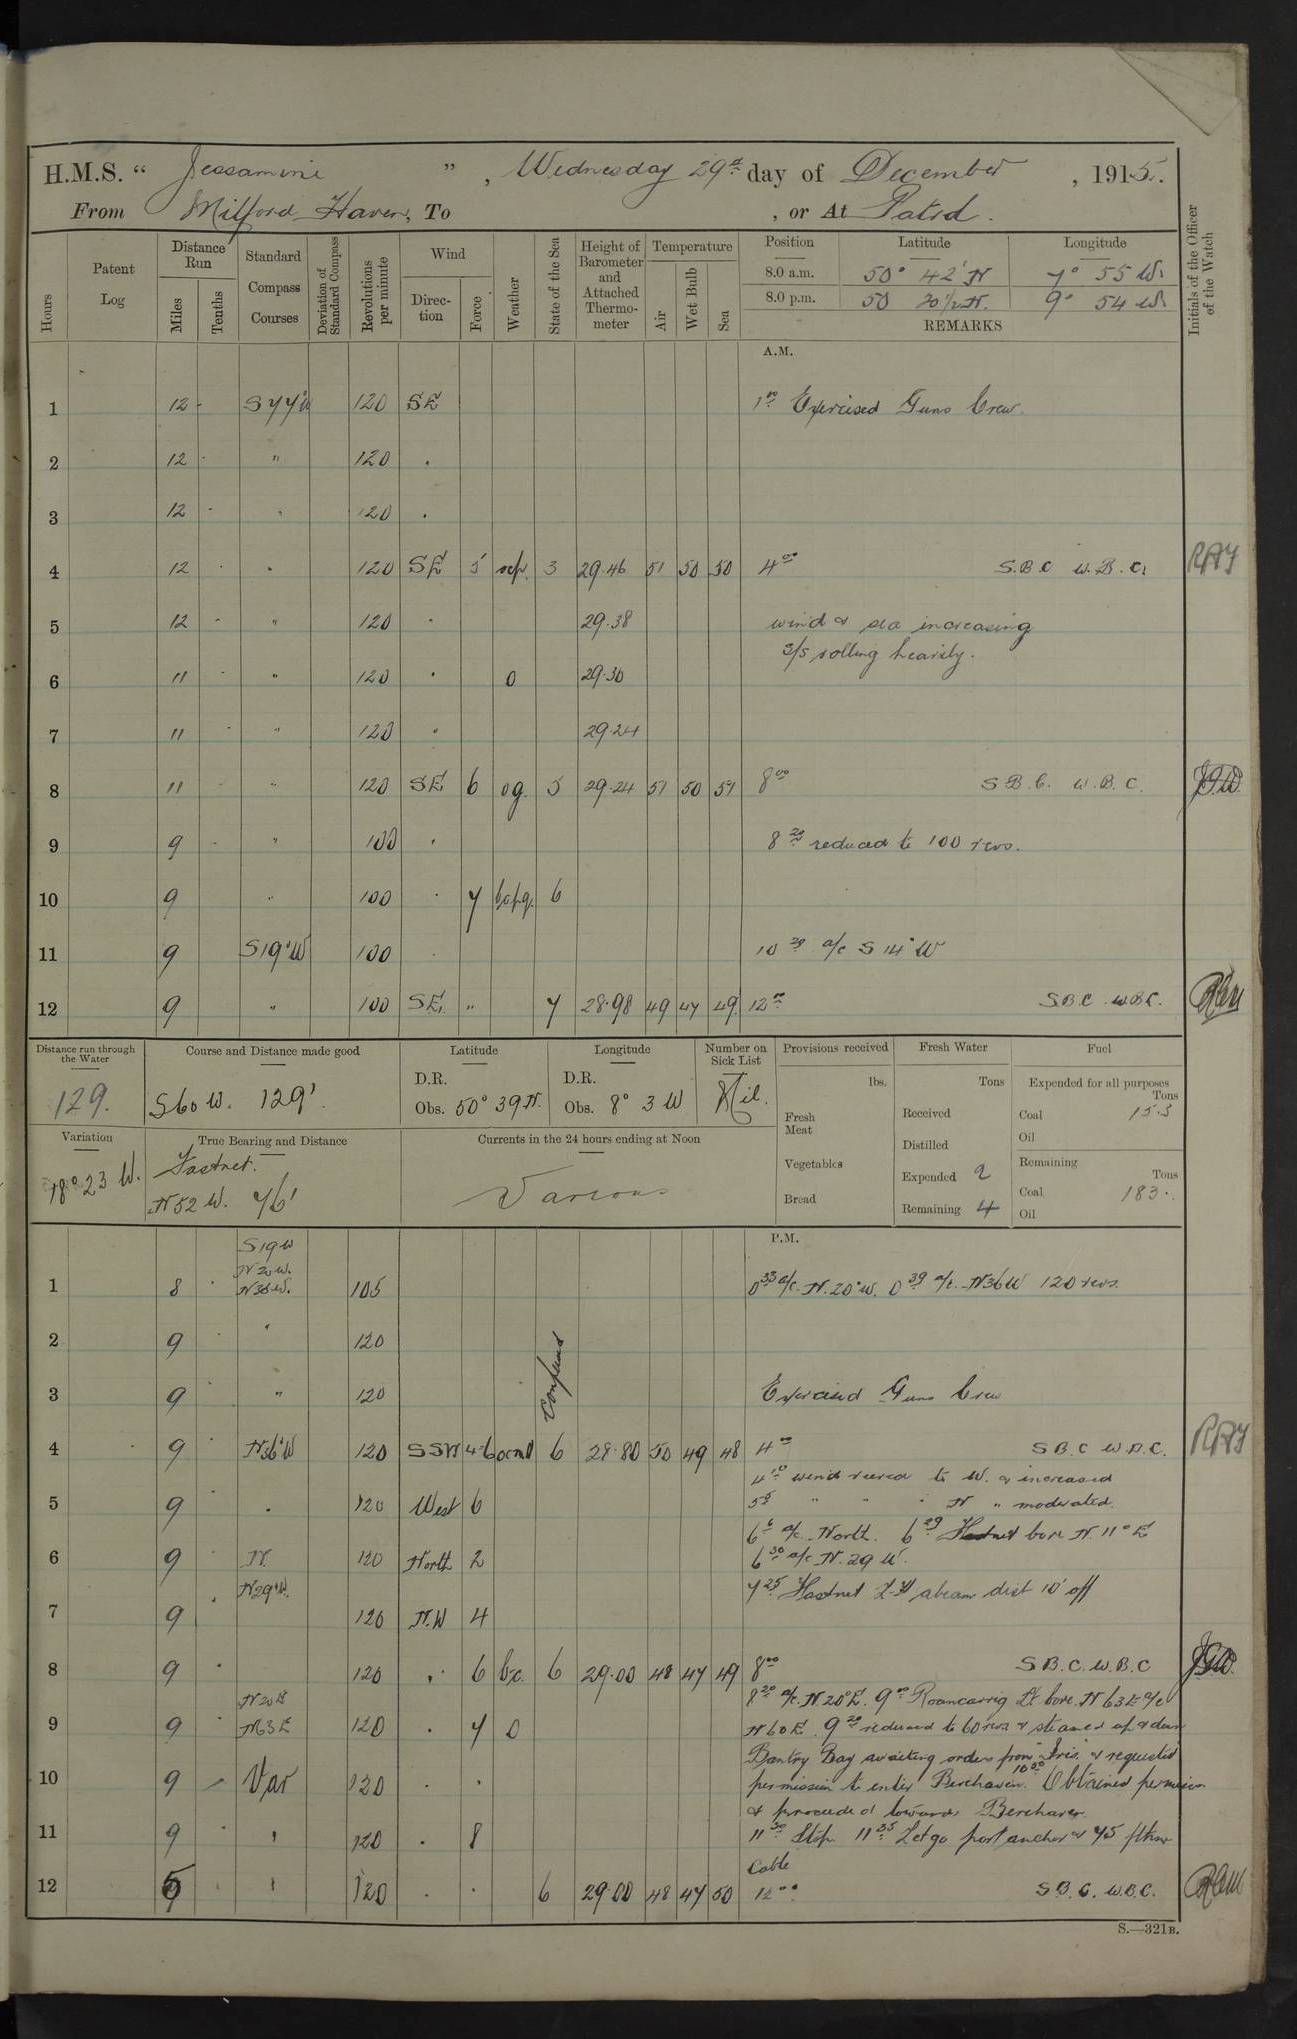 H.M.S. “ Jessamine ” , Wednesday 29th day of December , 1915.
From Milford Haven, To , or At Patrol.
Hours
Patent Log
Distance Run
Miles
Tenths
Standard Compass Courses
Deviation of Standard Compass
Revolutions per minute
Wind
Direction
Force
Weather
State of the Sea
Height of Barometer and Attached Thermometer
Temperature
Air
Wet Bulb
Sea
Position Latitude Longitude
8.0 a.m. 50° 42' N 7° 55 W.
8.0 p.m. 50 20½ N. 9° 54 W.
REMARKS
Initials of the Officer of the Watch
A.M.
1 12 - S 77° W 120 SE 1 00 Exercised Guns Crew.
2 12 - " 120 .
3 12 - " 120 .
4 12 . . 120 SE 5 3 29.46 51 50 50 4 00 S.B.C W.B.C.
5 12 - " 120 . 29.38 wind & sea increasing
6 11 . " 120 . 0 29.30 rolling heavily.
7 11 . " 120 . 29.24
8 11 . " 120 SE 6 og. 5 29.24 51 50 51 8 00 S.B.C. W.B.C.
9 9 . " 100 . 8 20 reduced to 100 revs.
10 9 " 100 . 7 6
11 9 S19°W 100 . 10 20 a/c S 14° W
12 9 " 100 SE. " 7 28.98 49 47 49 12 00 S.B.C W.B.C.
Distance run through the Water
129.
Course and Distance made good
S 60 W. 129'
Latitude
D.R.
Obs. 50° 39 N.
Longitude
D.R.
Obs. 8° 3 W
Number on Sick List
Nil.
Provisions received
lbs.
Fresh Meat
Vegetables
Bread
Fresh Water
Tons
Received
Distilled
Expended 2
Remaining 4
Fuel
Expended for all purposes
Tons
Coal 15.5
Oil
Remaining
Tons
Coal 183.
Oil
Variation
18° 23 W.
True Bearing and Distance
Fastnet.
N 52 W. 76'
Currents in the 24 hours ending at Noon
Various
P.M.
S19W
N 20 W.
1 8 . N36W. 105 0 33 a/c. N. 20° W. 0 39 a/c. N36W 120 revs.
2 9 . " 120
3 9 . " 120 Confused Exercised Guns Crew
4 9 . N36°W 120 SSW 4-6 6 28.80 50 49 48 4 00 S.B.C W.B.C.
4 10 wind veered to W. & increased
5 9 . . 120 West 6 5 5 " " " N " moderated.
6 6 a/c North. 6 29 Fastnet bore N 11° E
6 9 N. 120 North 2 6 30 a/c N. 29 W.
N29°W. 7 25 Fastnet abeam dist 10' off
7 9 120 N.W 4
8 9 . 120 . 6 b.c. 6 29.00 48 47 49 8 00 S.B.C. W.B.C
N 20 E 8 20 a/c. N. 20° E. 9 00 Roancarrig Lt bore N 63 E a/c
9 9 . N63E 120 . 7 0 N 60 E. 9 20 reduced to 60 revs & steamed up & down
Bantry Bay awaiting orders from "Iris" & requested
10 9 Var 120 . . permission to enter Berehaven. 10 50 Obtained permission
& proceeded towards Berehaven.
11 9 " 120 . 8 11 30 Stop 11 35 Let go port anchor & 45 fthms
cable
12 5 . " 120 . . 6 29.00 48 47 50 12 00 S.B.C. W.B.C.
S.—321B.